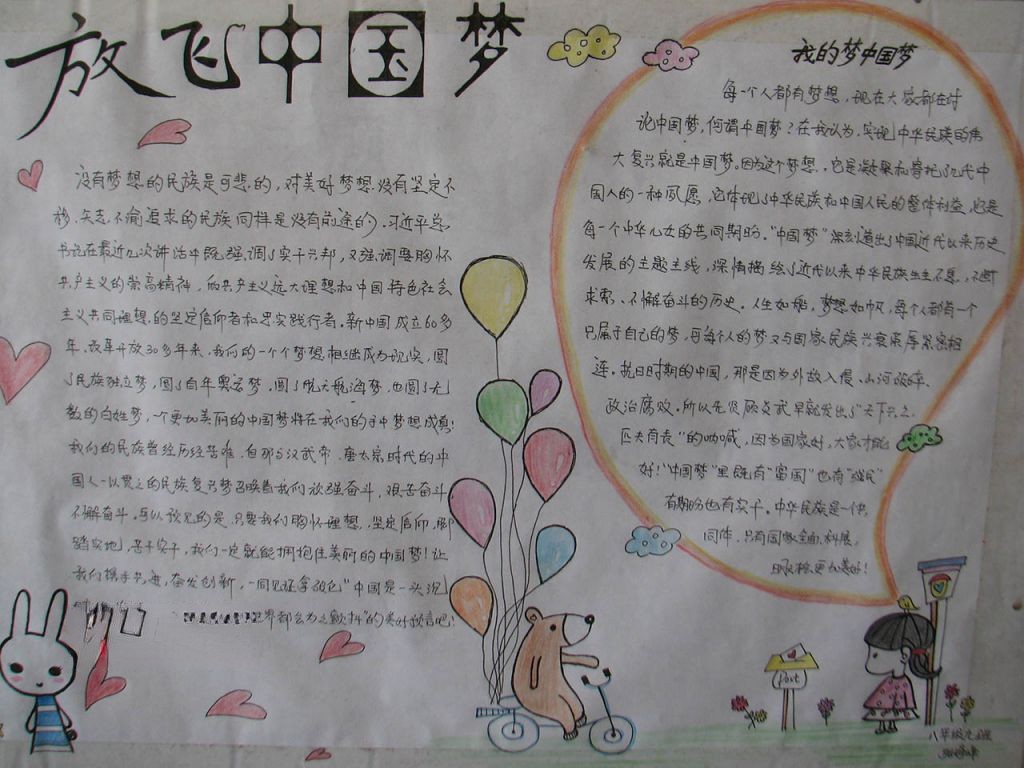 放飞中国梦
没有梦想的民族是可悲的，对美好梦想没有坚定不
移、矢志不渝追求的民族同样是没有前途的。习近平总
书记在最近几次讲话中既强调了实干兴邦，又强调要胸怀
共产主义的崇高精神，而共产主义远大理想和中国特色社会
主义共同理想的坚定信仰者和忠实践行者。新中国成立60多
年，改革开放30多年来，我们的一个个梦想相继成为现实，圆
了民族独立梦，圆了百年奥运梦，圆了航天航海梦，也圆了无
数的百姓梦，一个更加美丽的中国梦将在我们的手中梦想成真！
我们的民族曾经历经苦难，但那
汉武帝、唐太宗时代的中
国人一以贯之的民族复兴梦召唤着我们放强奋斗，艰苦奋斗
不懈奋斗。可以预见的是，只要我们胸怀理想，坚定信仰，脚
踏实地，苦干实干，我们一定就能拥抱住美丽的中国梦！让
我们携手共进，奋发创新，一同见证拿破仑"中国是一头沉
世界都会为之颤抖"的美好预言吧！
我的梦中国梦
每一个人都有梦想，现在大家都在讨
论中国梦，何谓中国梦？在我认为，实现中华民族的伟
大复兴就是中国梦。因为这个梦想，它是凝聚和寄托了几代中
国人的一种夙愿，它体现了中华民族和中国人民的整体利益，它是
每一个中华儿女的共同期盼。"中国梦"深刻道出了中国近代以来历史
发展的主题主线，深情描绘了近代以来中华民族生生不息、不断
求索、不懈奋斗的历史。人生如船，梦想如帆，每个人都有一个
只属于自己的梦，可每个人的梦又与国家民族兴衰荣辱紧密相
连。抗日时期的中国，那是因为外敌入侵、山河破碎、
政治腐败。所以先贤顾炎武早就发出了"天下兴亡，
匹夫有责"的呐喊，因为国家好，大家才能
好！"中国梦"里既有"富国"也有"强民"
有期盼也有实干。中华民族是一个共
同体，只有国家全面
明天将更加美好！
Post
八年级七班